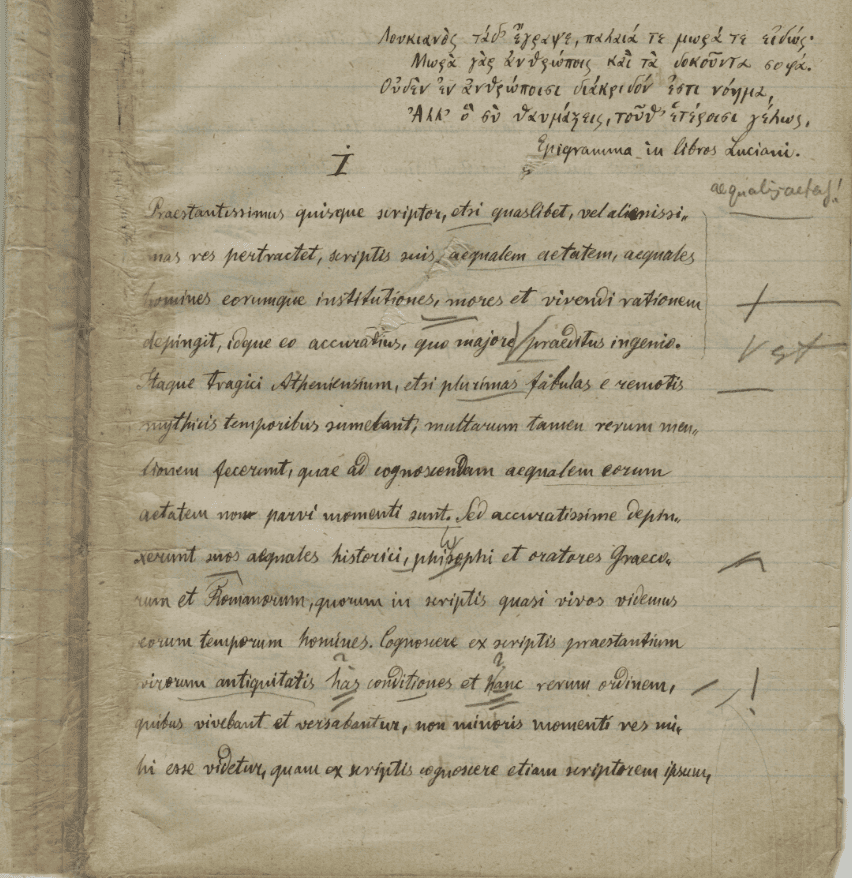 Λουκιανὸς τάδ' ἔγραψε, παλαιά τε μωρά τε εἰδώς·
Μωρὰ γὰρ ἀνθρώποις καὶ τὰ δοκοῦντα σοφά.
Οὐδὲν ἐν ἀνθρώποισι διάκριδόν ἐστι νόημα,
Ἀλλ' ὃ σὺ θαυμάζεις, τοῦθ' ἑτέροισι γέλως.
Epigramma in libros Luciani.
I
aequalis aetas!
Praestantissimus quisque scriptor, etsi quaslibet, vel alienissi„
mas res pertractet, scriptis suis aequalem aetatem, aequales
homines eorumque institutiones, mores et vivendi rationem
depingit, idque eo accuratius, quo majore praeditus ingenio.
Itaque tragici Atheniensium, etsi plurimas fabulas e remotis
mythicis temporibus sumebant, multarum tamen rerum men„
tionem fecerunt, quae ad cognoscendam aequalem eorum
aetatem non parvi momenti sunt. Sed accuratissime depin„
xerunt suos aequales historici, phisophi et oratores Graeco„
rum et Romanorum, quorum in scriptis quasi vivos videmus
eorum temporum homines. Cognoscere ex scriptis praestantium
virorum antiquitatis has conditiones et hanc rerum ordinem,
quibus vivebant et versabantur, non minoris momenti res mi„
hi esse videtur, quam ex scriptis cognoscere etiam scriptorem ipsum,